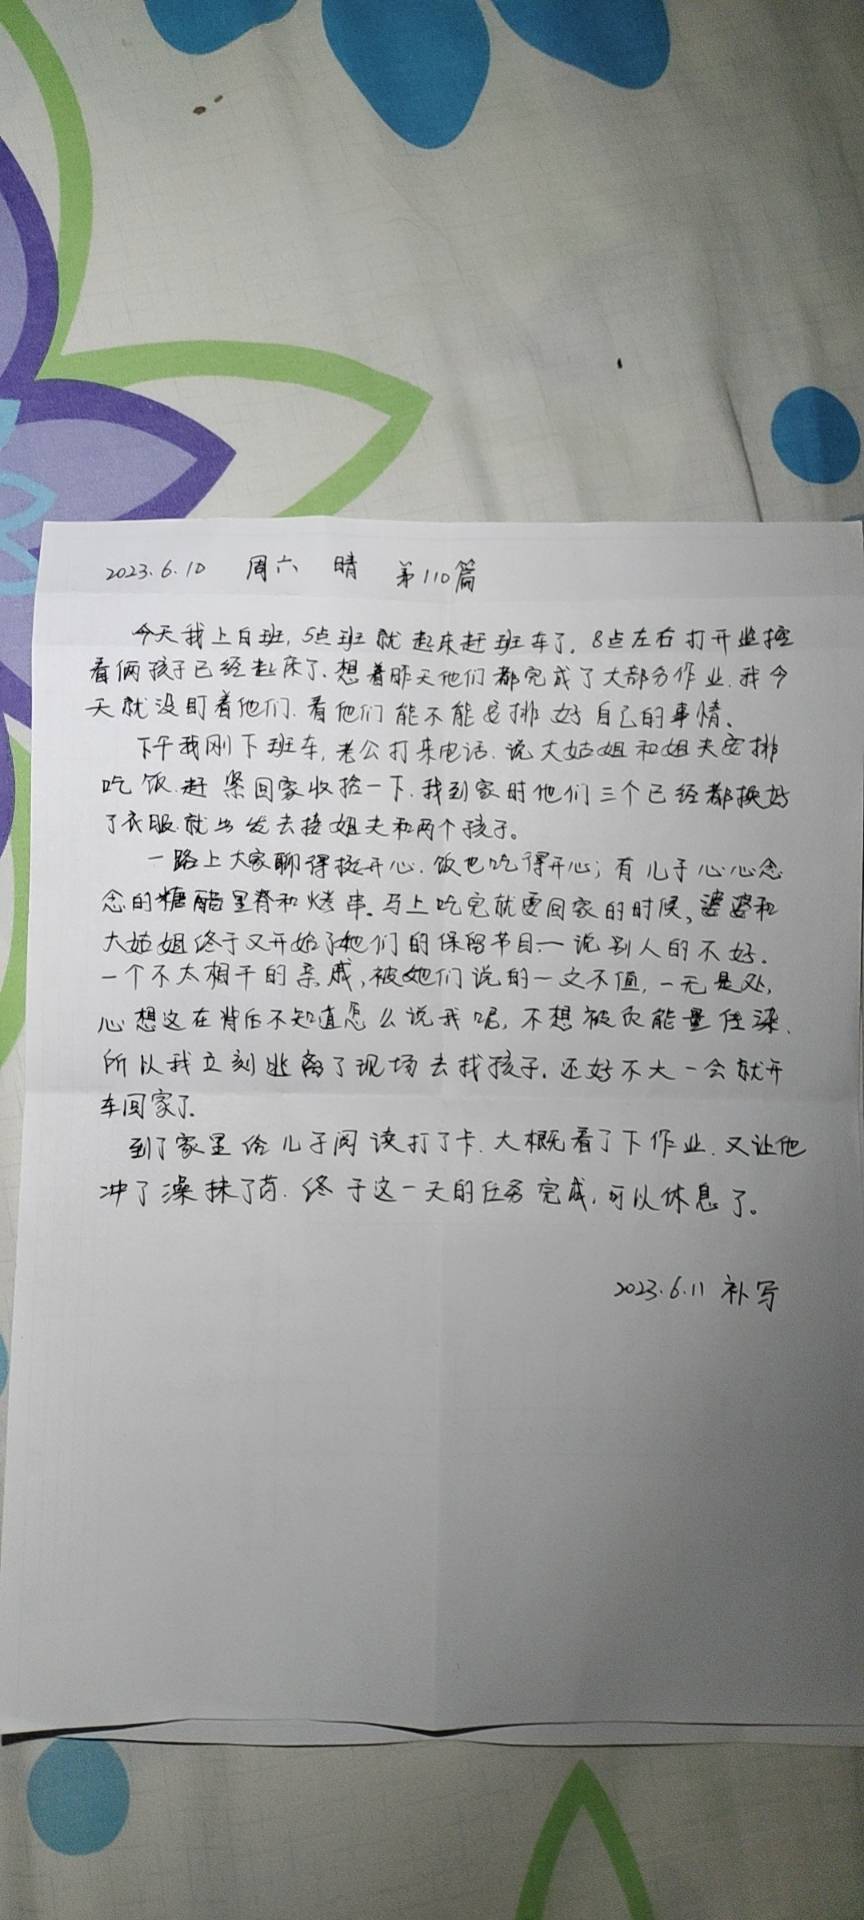 2023.6.10 周六 晴 第110篇
今天我上白班,5点班就起床赶班车了,8点左右打开监控
看俩孩子已经起床了.想着昨天他们都完成了大部分作业.我今
天就没盯着他们.看他们能不能安排好自己的事情、
下午我刚下班车,老公打来电话.说大姑姐和姐夫安排
吃饭.赶紧回家收拾一下.我到家时他们三个已经都换好
了衣服.就出发去接姐夫和两个孩子。
一路上大家聊得挺开心.饭也吃得开心;有儿子心心念
念的糖醋里脊和烤串.马上吃完就要回家的时候,婆婆和
大姑姐终于又开始了她们的保留节目—说别人的不好.
一个不太相干的亲戚,被她们说的一文不值,一无是处,
心想这在背后不知道怎么说我呢,不想被负能量传染.
所以我立刻逃离了现场去找孩子.还好不大一会就开
车回家了.
到了家里给儿子阅读打了卡.大概看了下作业.又让他
冲了澡抹了药.终于这一天的任务完成,可以休息了。
2023.6.11 补写